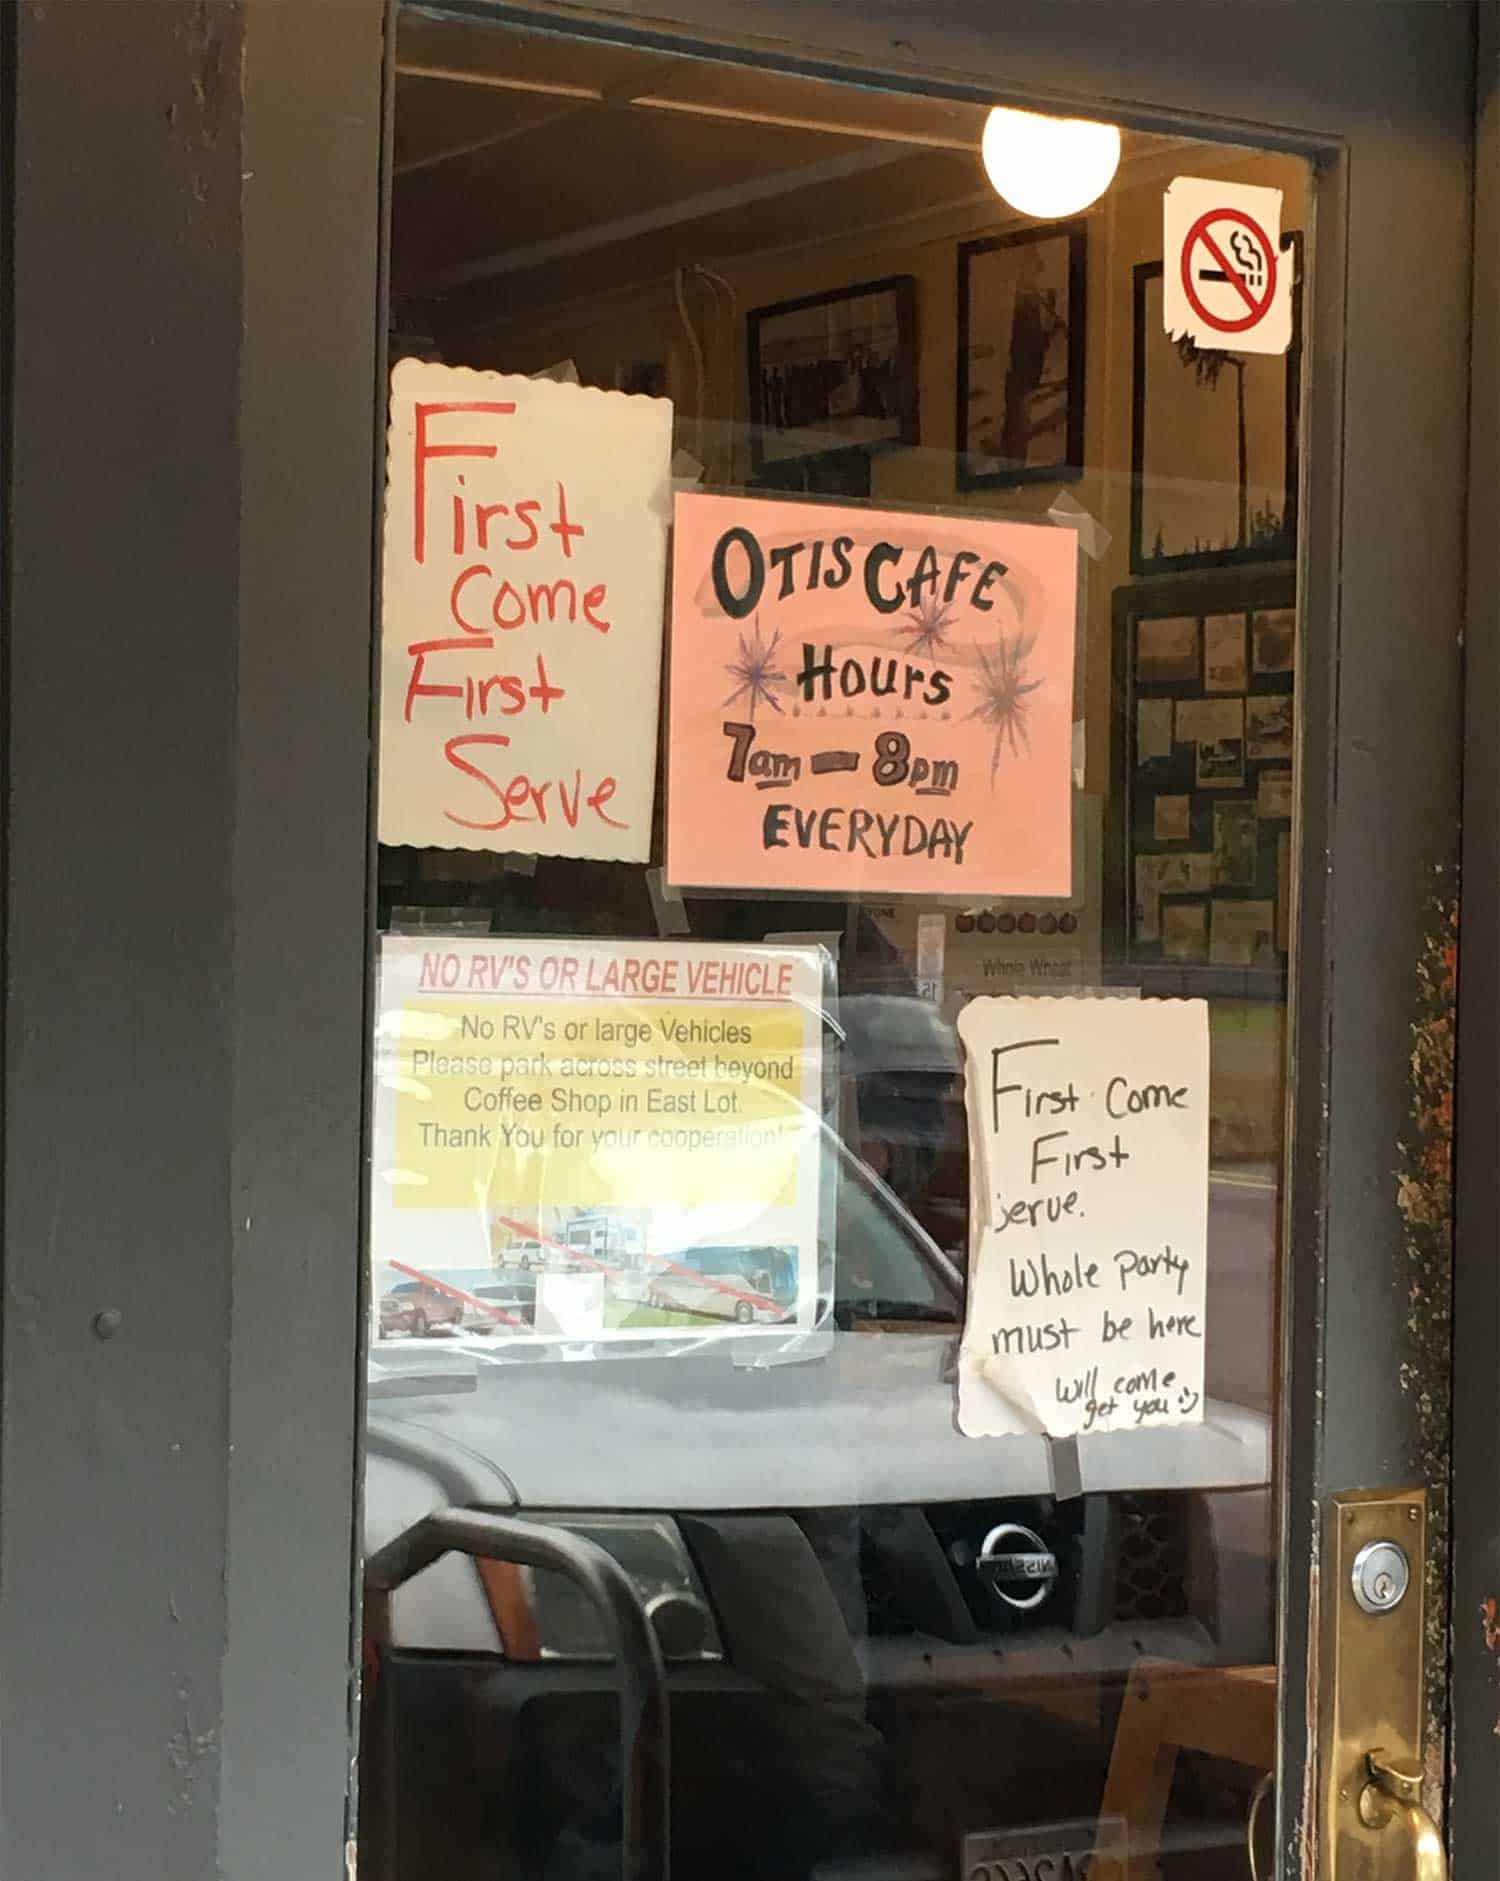 First
Come
First
Serve
OTIS CAFE
Hours
7am - 8pm
EVERYDAY
NO RV'S OR LARGE VEHICLE
No RV's or large Vehicles
Please park across street beyond
Coffee Shop in East Lot.
Thank You for your cooperation!
Whole Wheat
First Come
First
serve.
Whole Party
must be here
Will come
get you :)
NISSAN